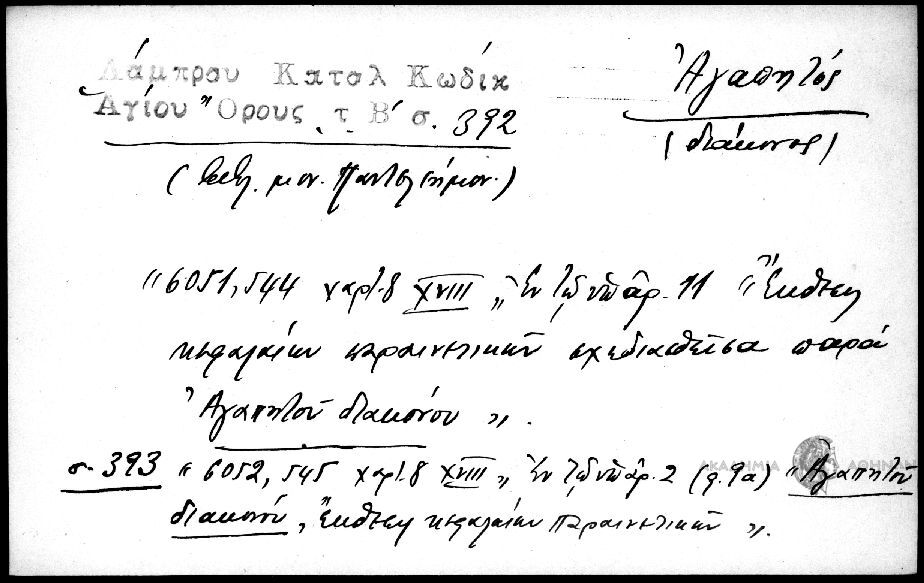 Λάμπρου Καταλ Κωδίκ
Ἁγίου Ὄρους τ. Β΄ σ. 392
Ἀγαπητός
(διάκονος)
(Βιβλ. μον. Παντελεήμον.)
"6051, 544 χαρτ. 8 XVIII" Ἐν τῷ ὑπ' ἀρ. 11 "Ἔκθεσις
κεφαλαίων παραινετικῶν σχεδιασθεῖσα παρά
Ἀγαπητοῦ διακόνου".
σ. 393 "6052, 545 χαρτ. 8 XVIII" Ἐν τῷ ὑπ' ἀρ. 2 (φ. 9α) "Ἀγαπητοῦ
διακόνου, Ἔκθεσις κεφαλαίων παραινετικῶν".
ΑΚΑΔΗΜΙΑ ΑΘΗΝΩΝ